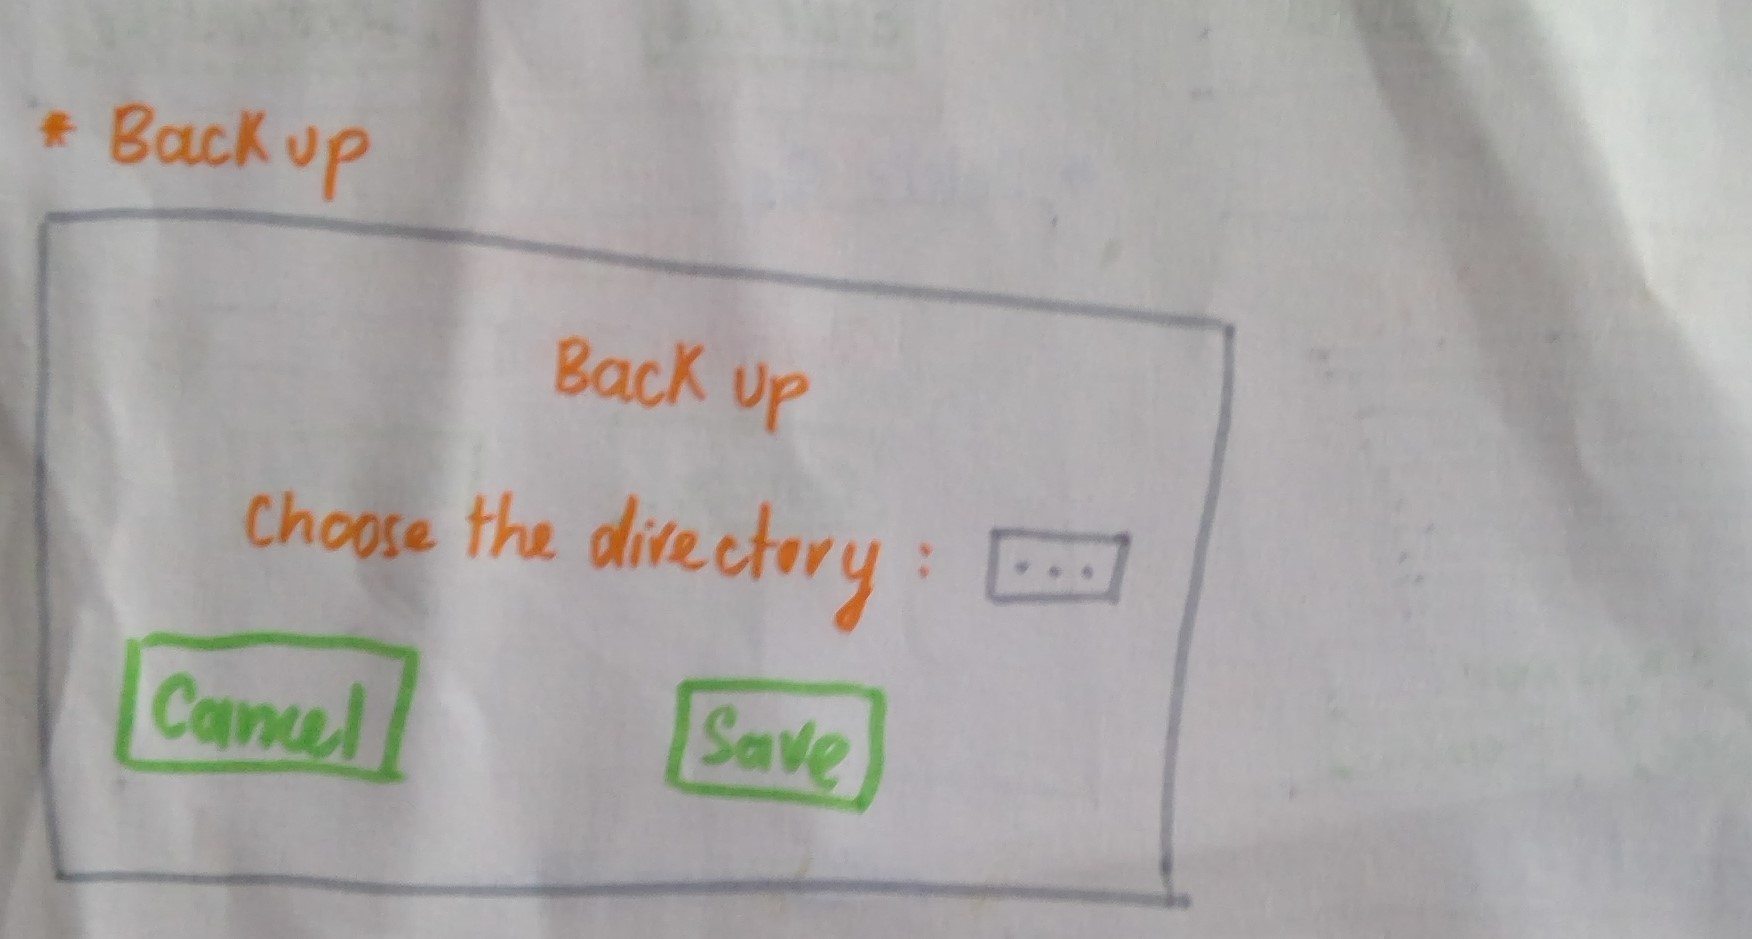 * Back up
Back up
Choose the directory : ...
Cancel
Save